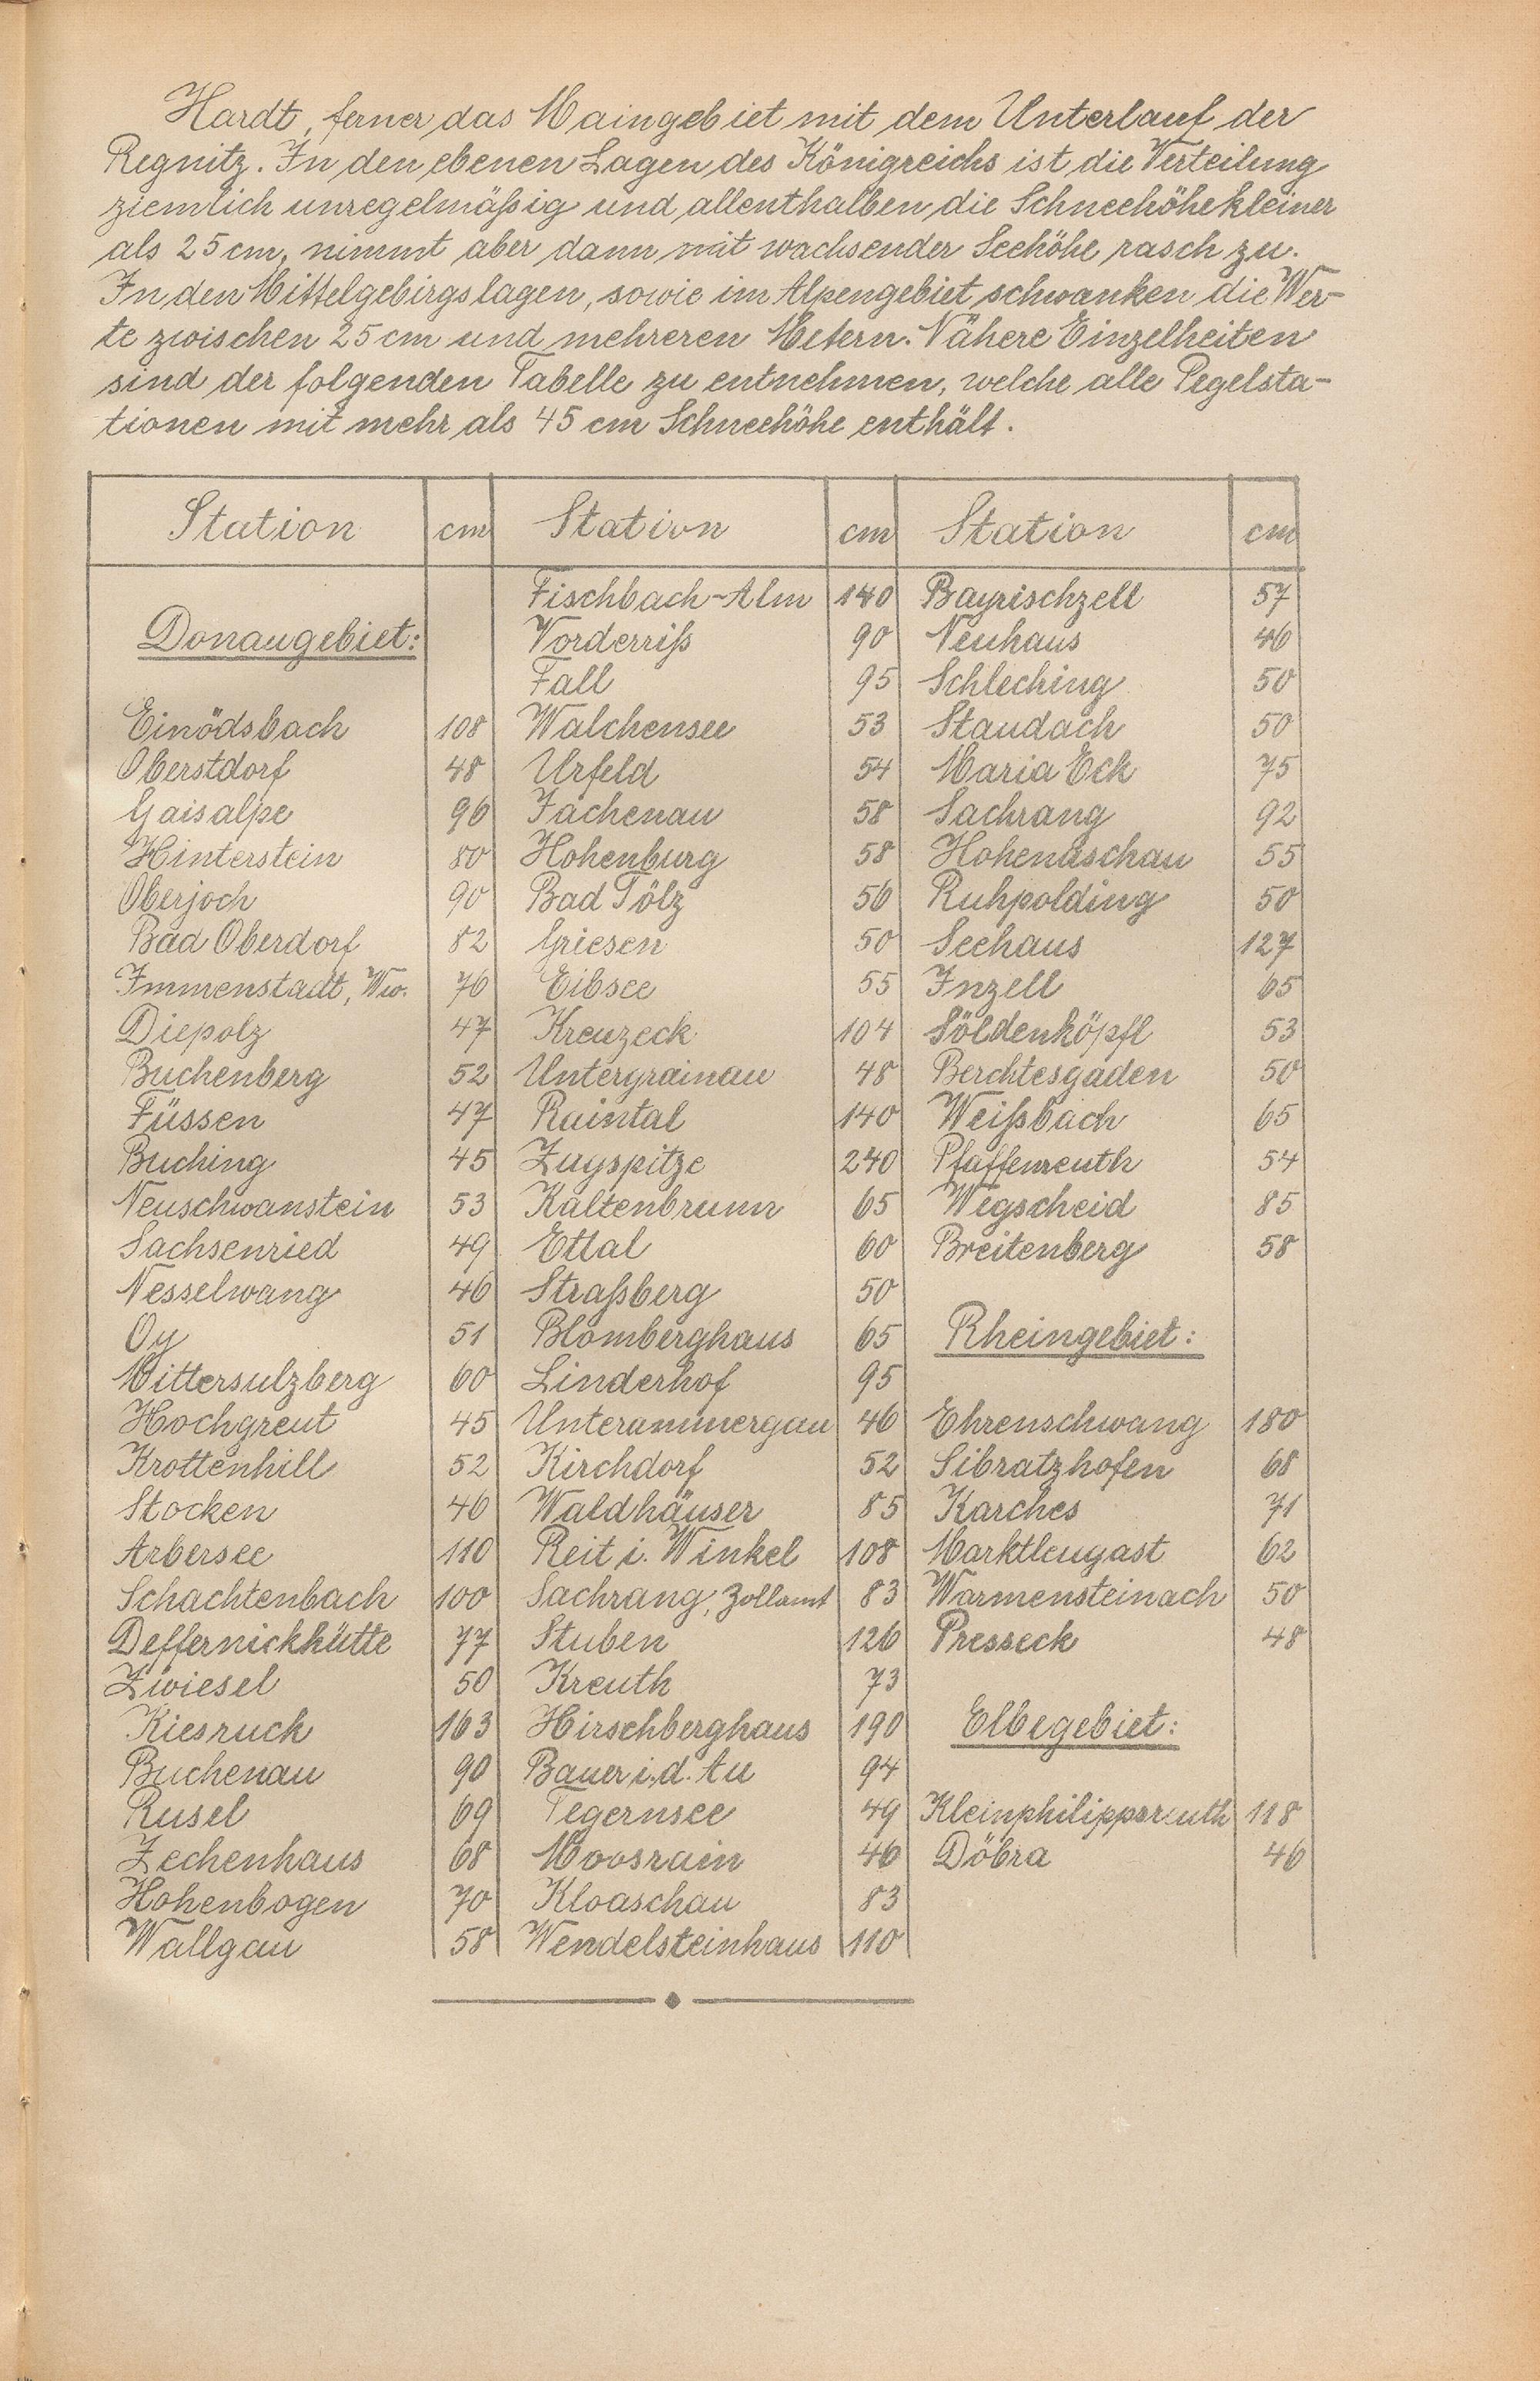 Hardt, ferner das Maingebiet mit dem Unterlauf der
Regnitz. In den ebenen Lagen des Königreichs ist die Verteilung
ziemlich unregelmäßig und allenthalben die Schneehöhe kleiner
als 25 cm, nimmt aber dann mit wachsender Seehöhe rasch zu.
In den Mittelgebirgslagen, sowie im Alpengebiet schwanken die Wer-
te zwischen 25 cm und mehreren Metern. Nähere Einzelheiten
sind der folgenden Tabelle zu entnehmen, welche alle Pegelsta-
tionen mit mehr als 45 cm Schneehöhe enthält.
Station cm Station cm Station cm
Fischbach-Alm 140 Bayrischzell 57
Donaugebiet: Vorderriß 90 Neuhaus 46
Fall 95 Schleching 50
Einödsbach 108 Walchensee 53 Staudach 50
Oberstdorf 48 Urfeld 54 Maria Eck 75
Gaisalpe 96 Jachenau 58 Sachrang 92
Hinterstein 80 Hohenburg 58 Hohenaschau 55
Oberjoch 90 Bad Tölz 56 Ruhpolding 50
Bad Oberdorf 82 Griesen 50 Seehaus 127
Immenstadt, Ww. 76 Eibsee 55 Inzell 65
Diepolz 47 Kreuzeck 104 Söldenköpfl 53
Buchenberg 52 Untergrainau 48 Berchtesgaden 50
Füssen 47 Raintal 140 Weißbach 65
Buching 45 Zugspitze 240 Pfaffenreuth 54
Neuschwanstein 53 Kaltenbrunn 65 Wegscheid 85
Sachsenried 49 Ettal 60 Breitenberg 58
Nesselwang 46 Straßberg 50
Oy 51 Blomberghaus 65 Rheingebiet:
Mittersulzberg 60 Linderhof 95
Hochgreut 45 Unterammergau 46 Ehrenschwang 180
Krottenhill 52 Kirchdorf 52 Sibratzhofen 68
Stocken 46 Waldhäuser 85 Karches 71
Arbersee 110 Reit i. Winkel 108 Marktleugast 62
Schachtenbach 100 Sachrang, Zollamt 83 Warmensteinach 50
Deffernickhütte 77 Stuben 126 Presseck 48
Zwiesel 50 Kreuth 73
Kiesruck 163 Hirschberghaus 190 Elbegebiet:
Buchenau 90 Bauer i. d. Au 94
Rusel 69 Tegernsee 49 Kleinphilippsreuth 118
Zechenhaus 68 Moosrain 46 Döbra 46
Hohenbogen 70 Kloaschau 83
Wallgau 58 Wendelsteinhaus 110